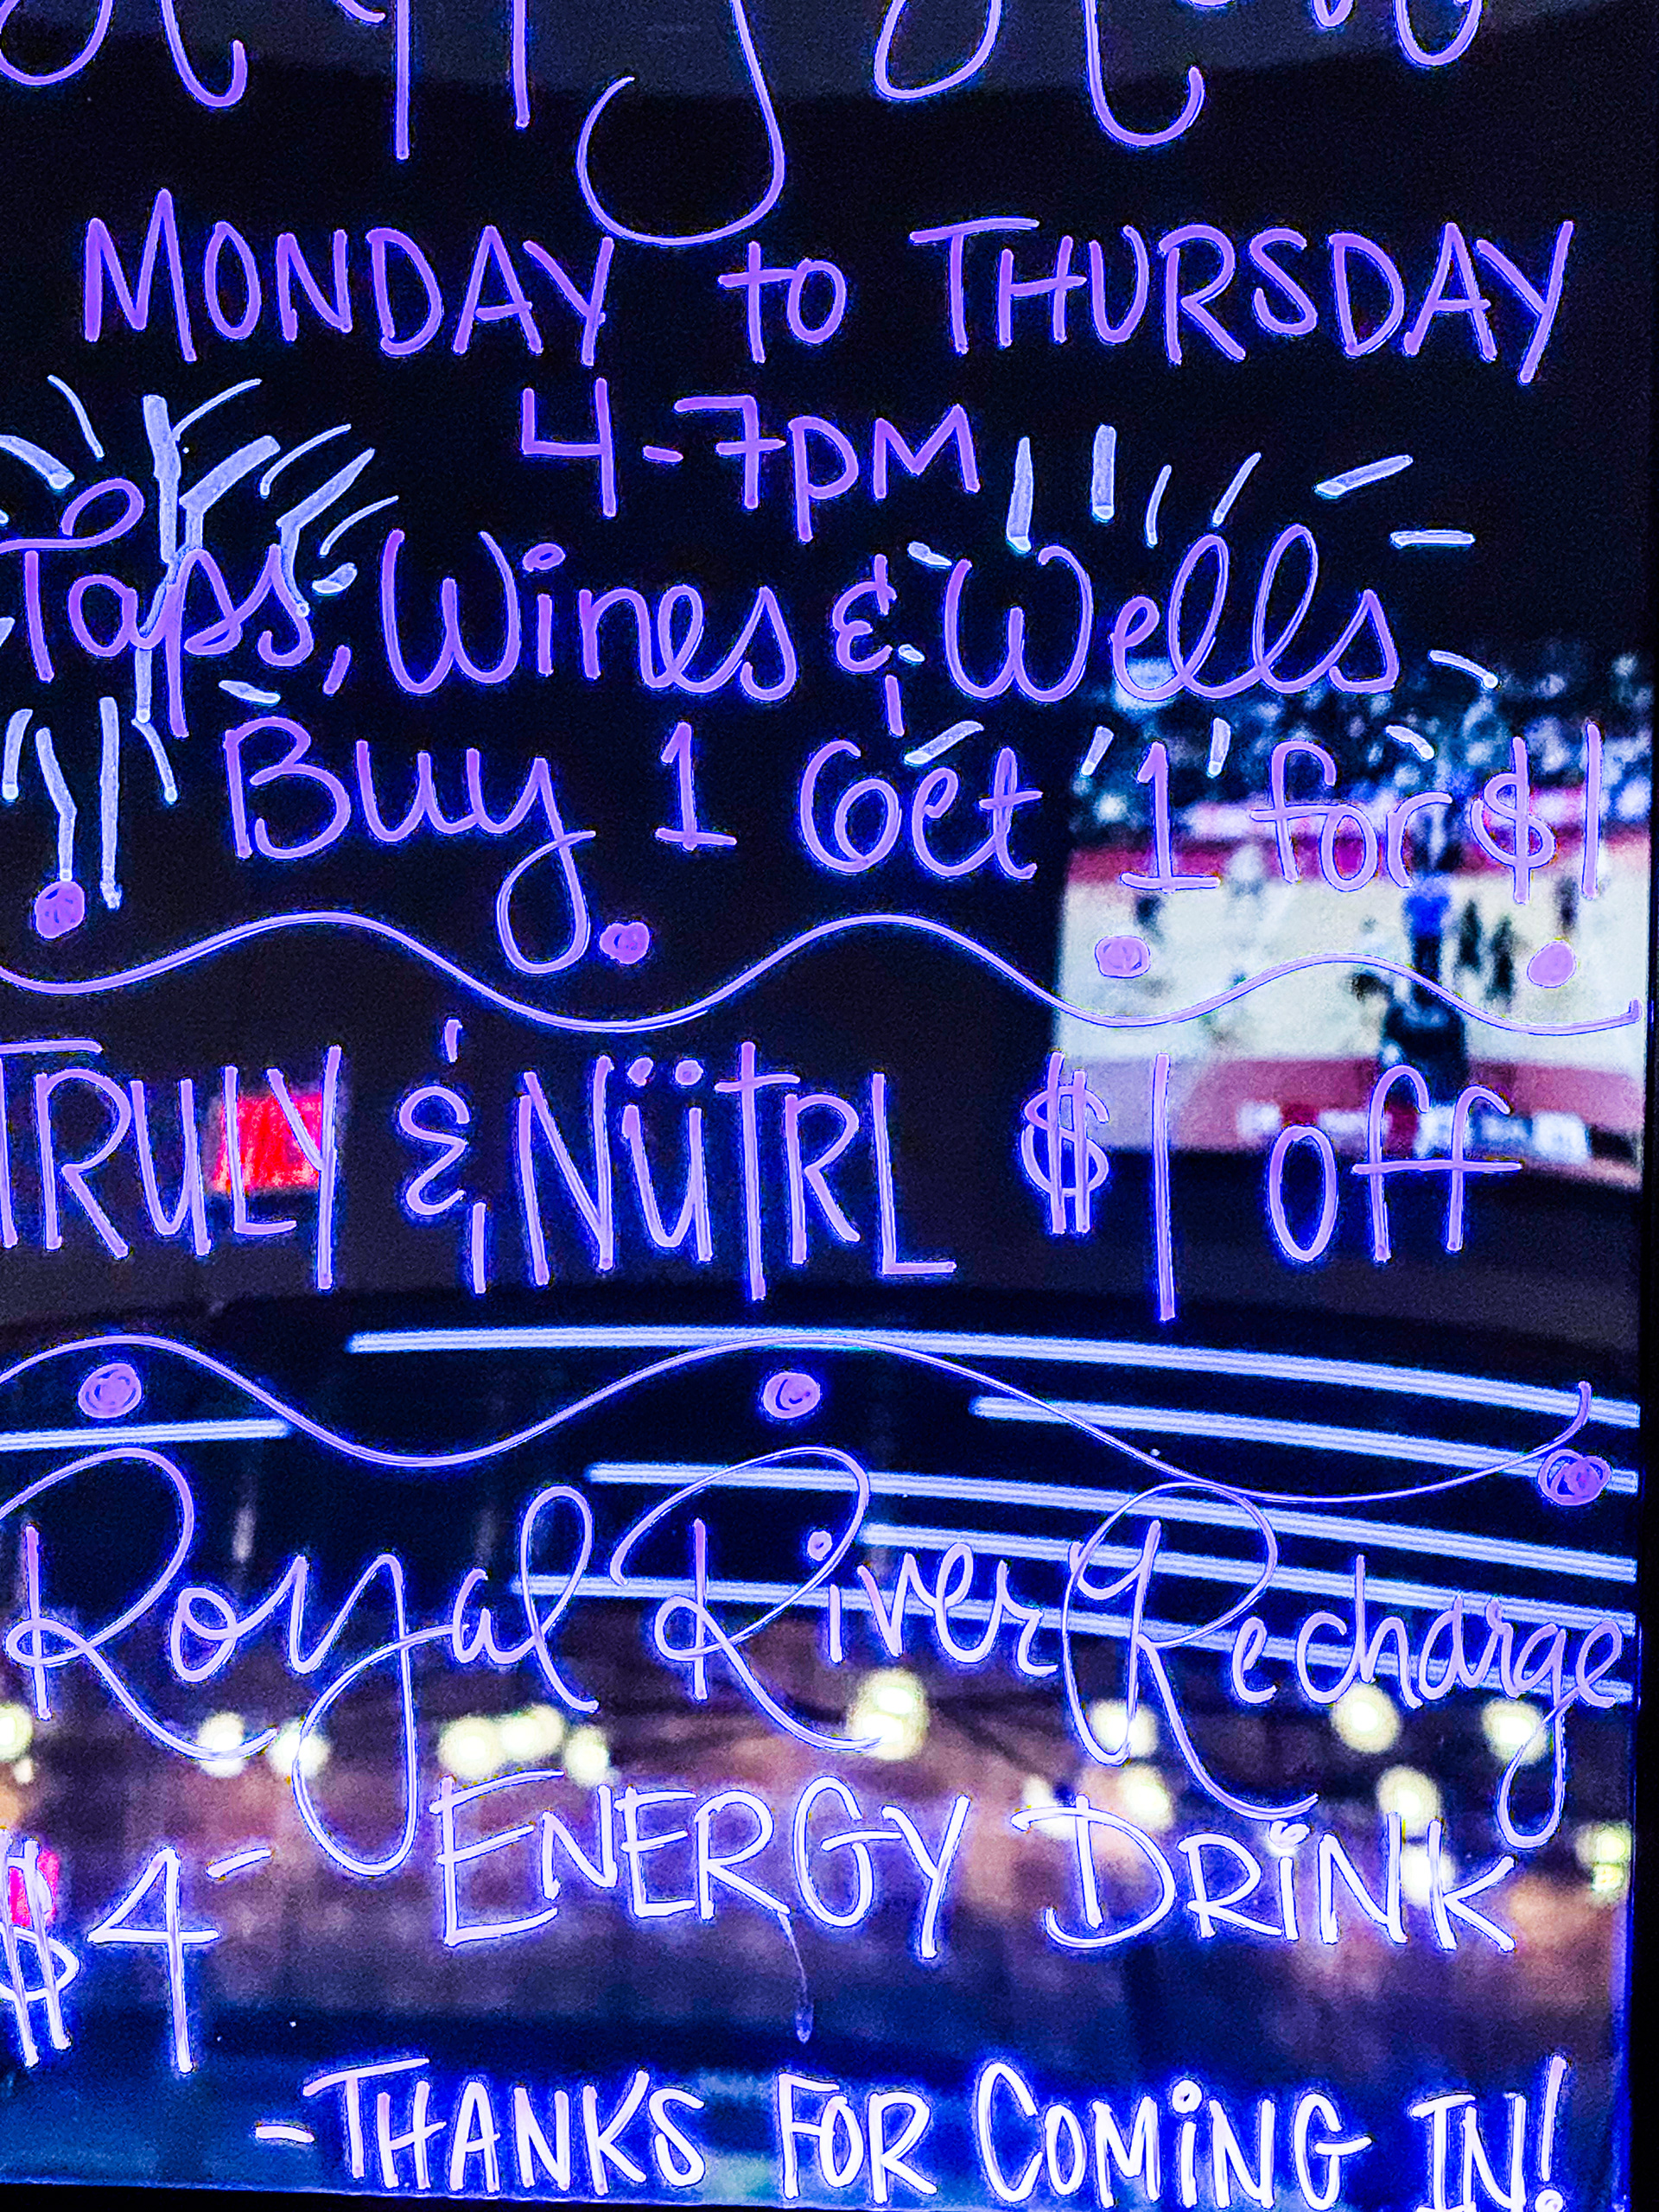 MONDAY to THURSDAY
4-7PM
Taps, Wines & Wells
Buy 1 Get 1 for $1
TRULY & NüTRL $1 off
Royal River Recharge
$4- ENERGY DRiNK
-THANKS FOR COMiNG IN!